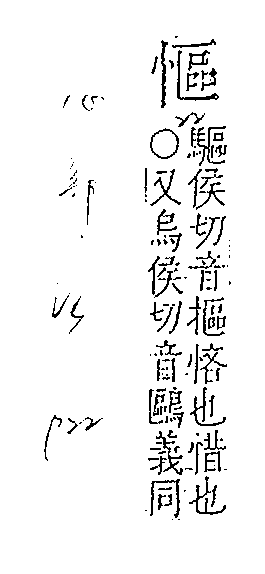 慪
驅侯切音摳悋也惜也
○又烏侯切音鷗義同
22
心部
p22